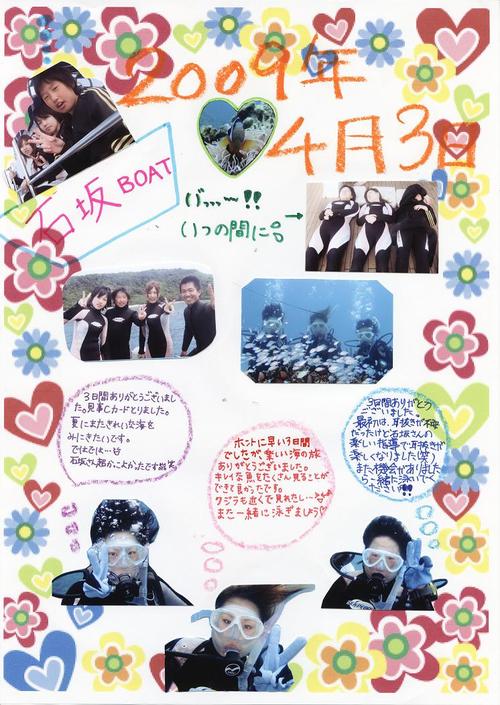 2009年
4月3日
石坂 BOAT
いつの間に
3日間ありがとうございまし
た。見事Cカードとりました。
夏にまたきれいな海を
みにきたいです。
ではでは…
石坂さん超かっこよかったです
ホントに早い3日間
でしたが、楽しい海の旅
ありがとうございました。
キレイな魚をたくさん見ることが
できて良かったです。
クジラも近くで見れたし…
また一緒に泳ぎましょう
3日間ありがとう
ございました。
最初は、耳抜きが不安
だったけど石坂さんの
楽しい指導で耳抜きが
楽しくなりました(笑)
また機会がありました
ら一緒に泳いでく
ださい!!